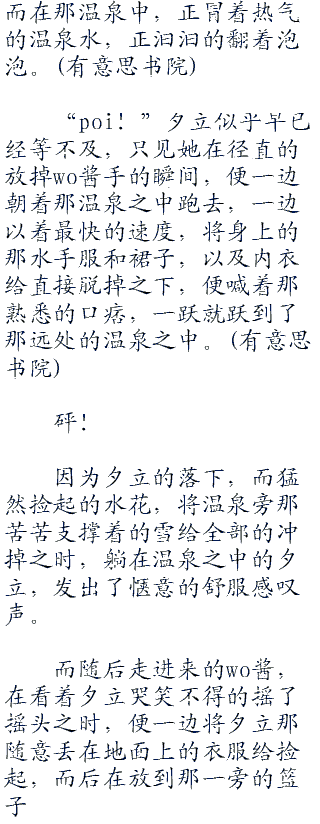 而在那温泉中，正冒着热气
的温泉水，正汩汩的翻着泡
泡。(有意思书院)
“poi！”夕立似乎早已
经等不及，只见她在径直的
放掉wo酱手的瞬间，便一边
朝着那温泉之中跑去，一边
以着最快的速度，将身上的
那水手服和裙子，以及内衣
给直接脱掉之下，便喊着那
熟悉的口癖，一跃就跃到了
那远处的温泉之中。(有意思
书院)
砰！
因为夕立的落下，而猛
然捡起的水花，将温泉旁那
苦苦支撑着的雪给全部的冲
掉之时，躺在温泉之中的夕
立，发出了惬意的舒服感叹
声。
而随后走进来的wo酱，
在看着夕立哭笑不得的摇了
摇头之时，便一边将夕立那
随意丢在地面上的衣服给捡
起，而后在放到那一旁的篮
子